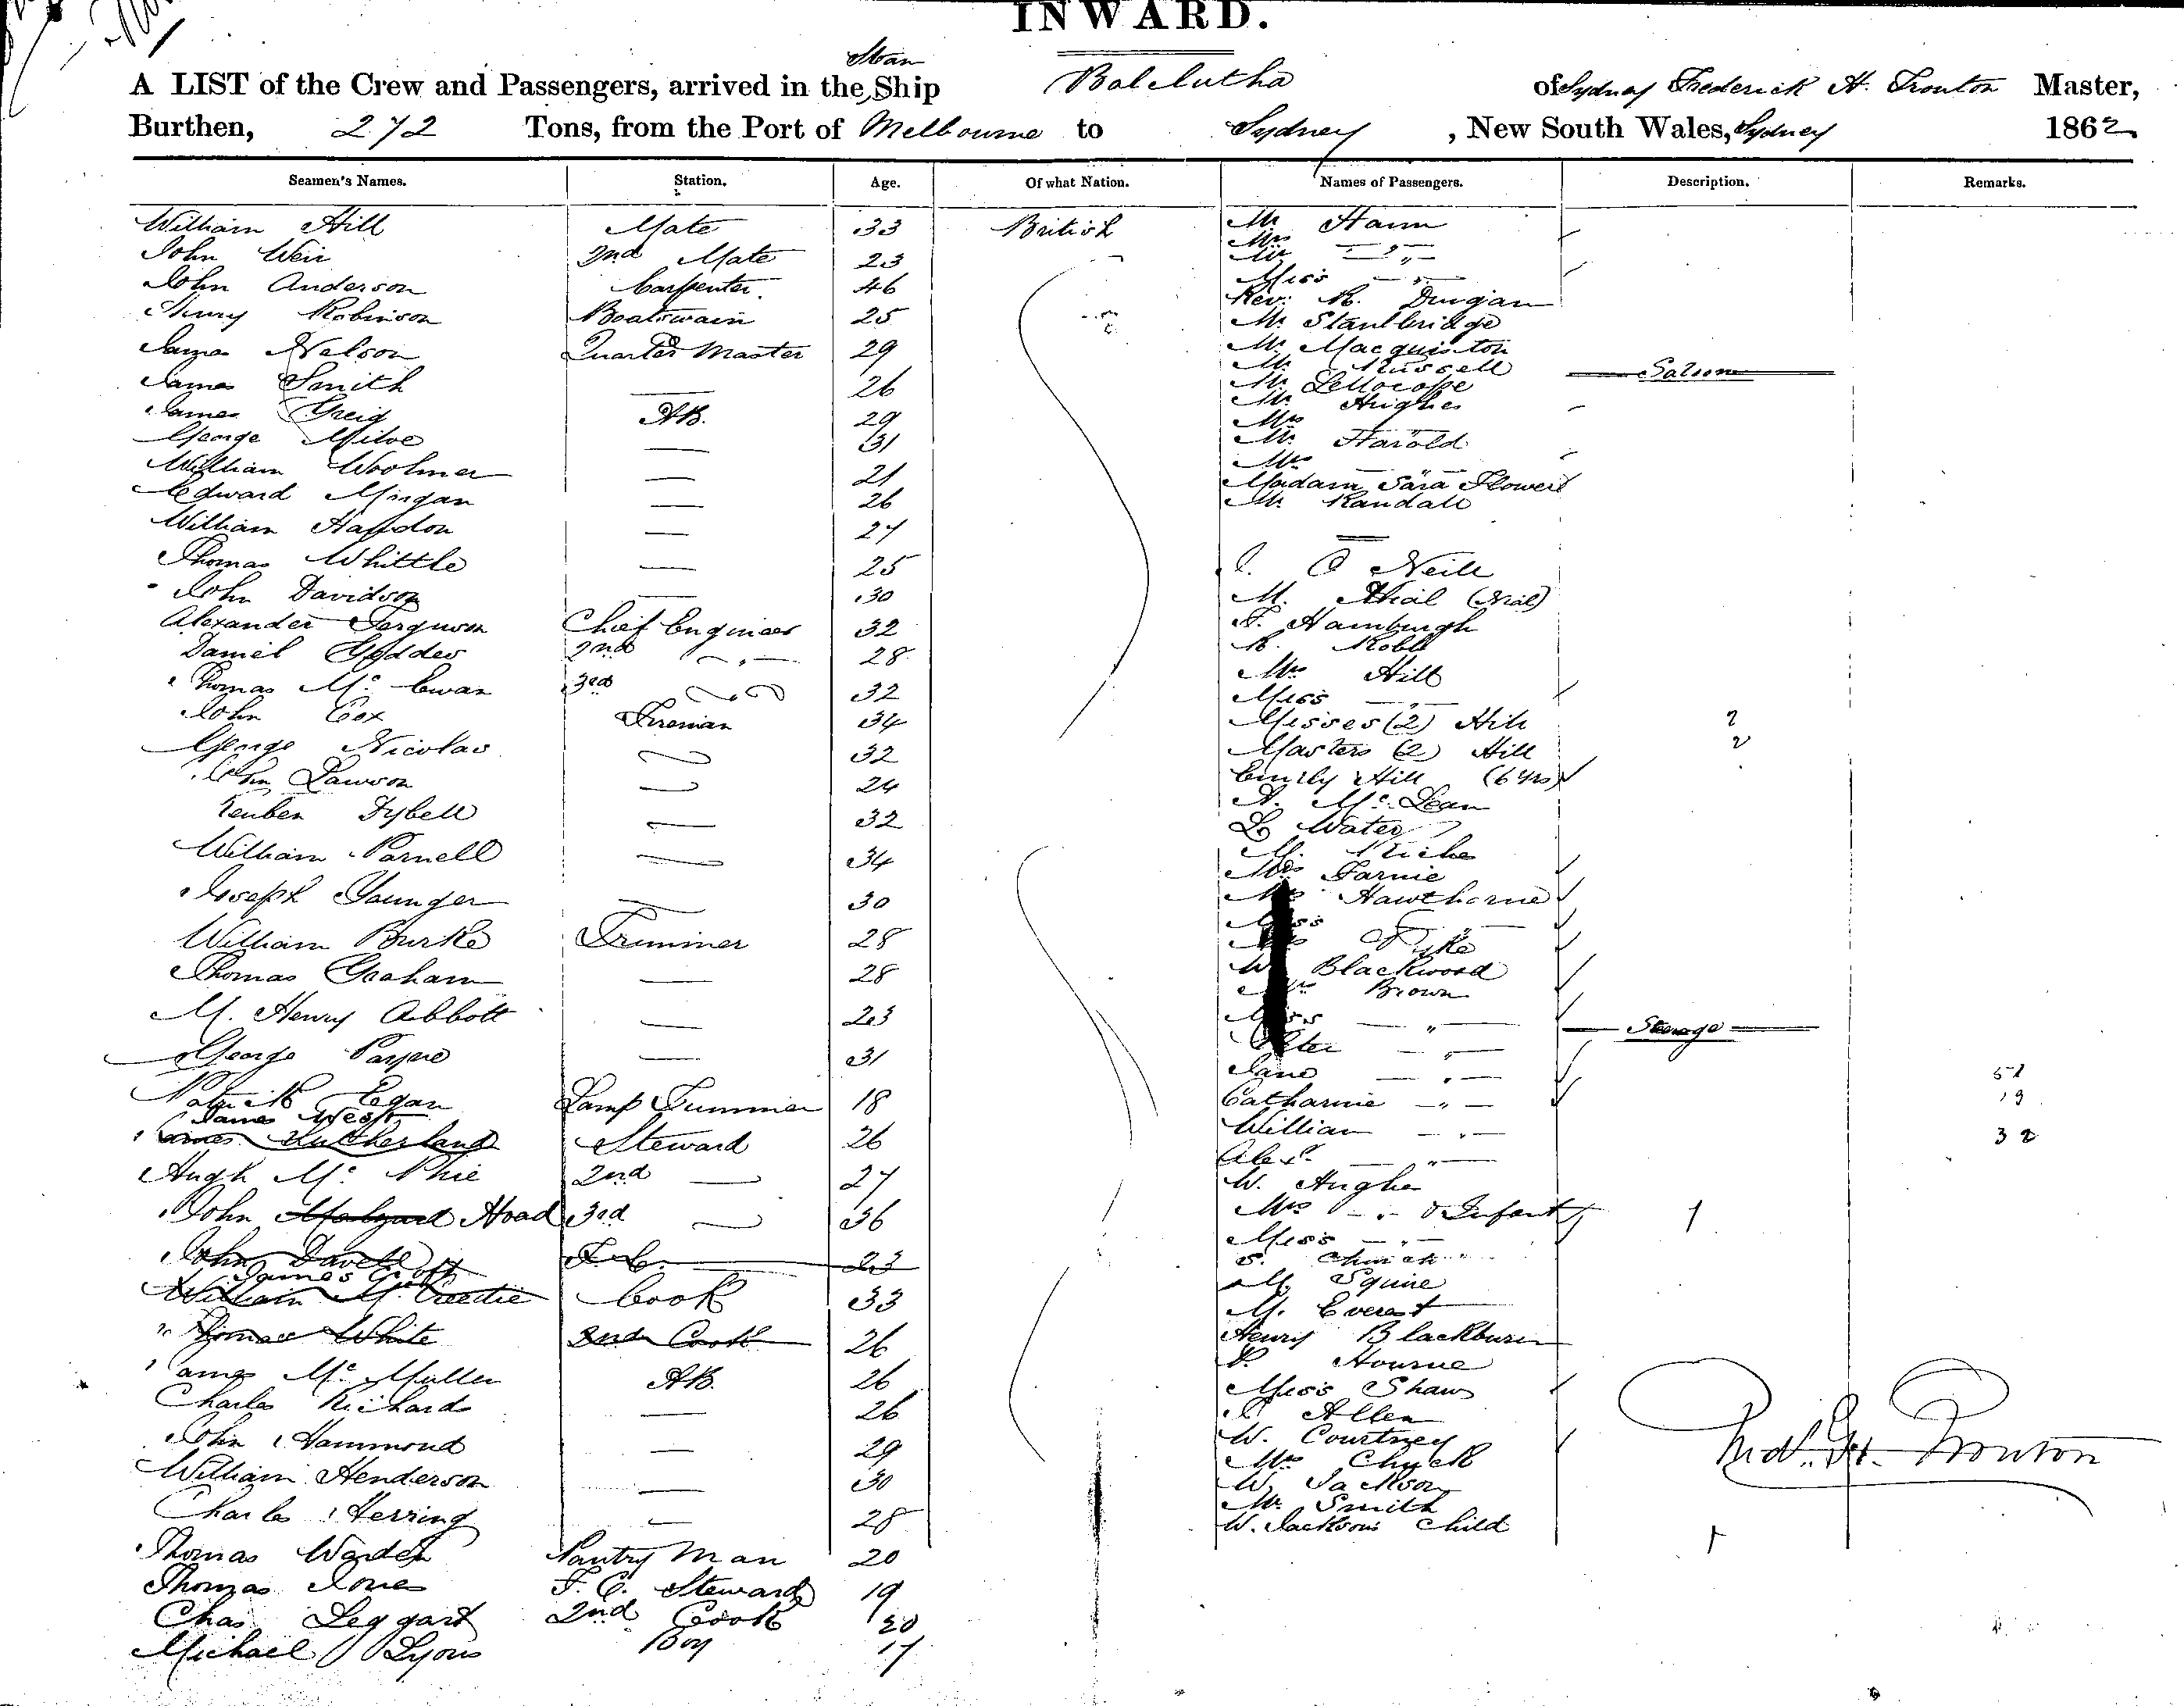 INWARD.
Steam
A LIST of the Crew and Passengers, arrived in the Ship Balclutha of Sydney Frederick H. Trouton Master,
Burthen, 272 Tons, from the Port of Melbourne to Sydney, New South Wales, Sydney 1862
Seamen's Names. Station. Age. Of what Nation. Names of Passengers. Description. Remarks.
William Hill Mate 33 British
John Weir 2nd Mate 23
John Anderson Carpenter 46
Henry Robinson Boatswain 25
James Nelson Quarter Master 29
James Smith — 26
James Greig AB. 29
George Milne — 31
William Woolmer — 21
Edward Morgan — 26
William Haddon — 27
Thomas Whittle — 25
John Davidson — 30
Alexander Ferguson Chief Engineer 32
Daniel Geddes 2nd — " — 28
Thomas Mc Ewan 3rd 32
John Cox Fireman 34
George Nicolas — 32
John Lawson — 24
Reuben Sybell — 32
William Parnell — 34
Joseph Younger — 30
William Burke Trimmer 28
Thomas Graham — 28
M. Henry Abbott — 23
George Payne — 31
Patrick Egan Lamp Trimmer 18
James West
James Sutherland Steward 26
Hugh Mc Phie 2nd — 27
John Malyard Hoad 3rd — 36
John Davell 23
James Croft
William McCreedie Cook 33
Thomas White 2nd Cook 26
James Mc Mullen AB. 26
Charles Richard — 26
John Hammond — 29
William Henderson — 30
Charles Herring — 28
Thomas Warden Pantry Man 20
Thomas Jones F. C. Steward 19
Chas Leggart 2nd Cook 20
Michael Lyons Boy 17
Mr Hann
Mrs — " —
Mr
Miss — " —
Rev: R. Dungan
Mr Stanbridge
Mr Macquiston
Mr Russell
Saloon
Mr
Mr Hughes
Mrs
Mr Harold
Mrs
Madam Sara Flower
Mr Randall
J. O Neill
M. Nhial (Nial)
F. Hamburgh
R. Robb
Mrs Hill
Miss — " —
Misses (2) Hill 2
Masters (2) Hill 2
Emily Hill (6 yrs)
A. Mc Lean
L Water
M.
Mrs Farnie
Mrs Hawthorne
Miss — " —
Pyke
W Blackwood
Mrs Brown
Miss — " —
Steerage
Peter — " —
Jane — " — 51
Catharine — " — 19
William — " — 32
Alex. — " —
W. Hughes
Mrs — " — & Infant 1
Miss — " —
S. Church
M. Squire
M. Everest
Henry Blackburn
P. Hourne
Miss Shaw
J. Allen
W. Courtney
Mrs Chuck
W. Jackson
Mr. Smith
W. Jacksons Child 1
Fredk. H. Trouton